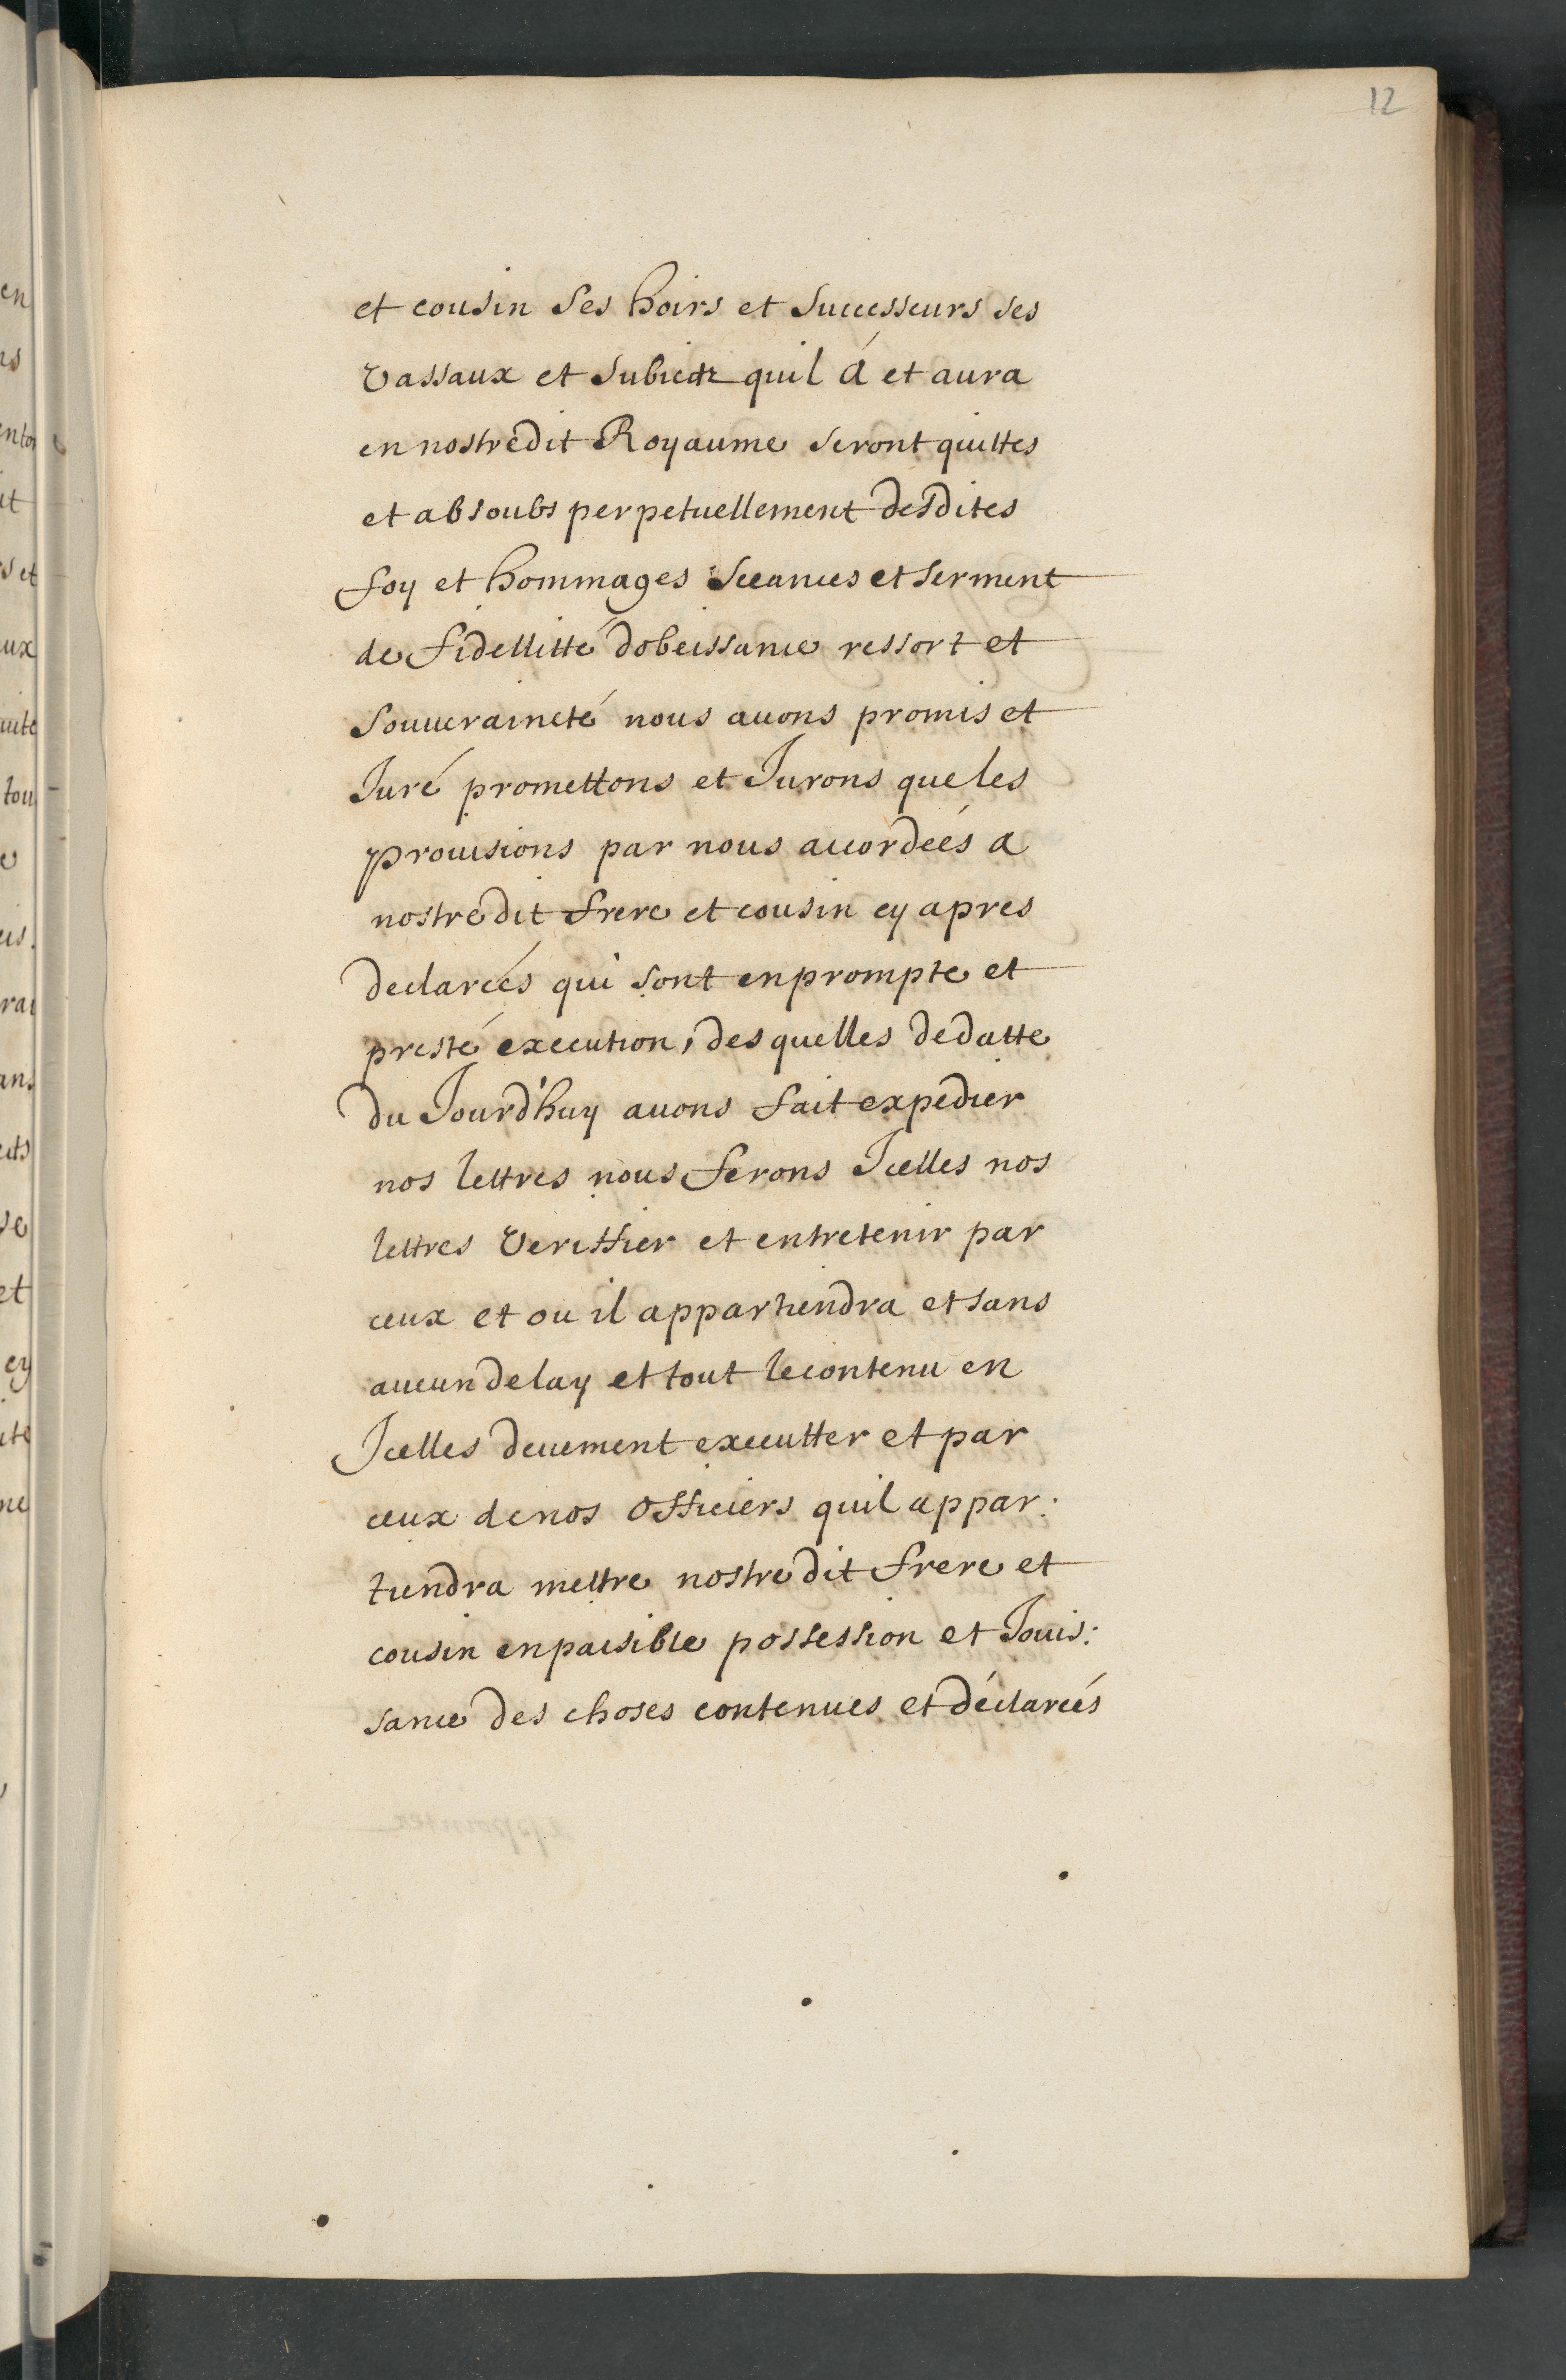 12
et cousin ses hoirs et successeurs ses
vassaux et subiectz quil á et aura
en nostredit Royaume seront quittes
et absoubs perpetuellement desdites
foy et hommages sceances et serment
de fidellitté dobeissance ressort et
souueraineté nous auons promis et
Juré promettons et Jurons que les
prouisions par nous accordeés a
nostredit frere et cousin cy apres
declareés qui sont en prompte et
presté execution, des quelles de datte
du Jourd'huy auons fait expedier
nos lettres nous ferons Jcelles nos
lettres veriffier et entretenir par
ceux et ou il appartiendra et sans
aucun delay et tout le contenu en
Jcelles deuement executter et par
ceux de nos officiers quil appar:
tiendra mettre nostredit frere et
cousin en paisible possession et Jouis:
sance des choses contenues et déclareés